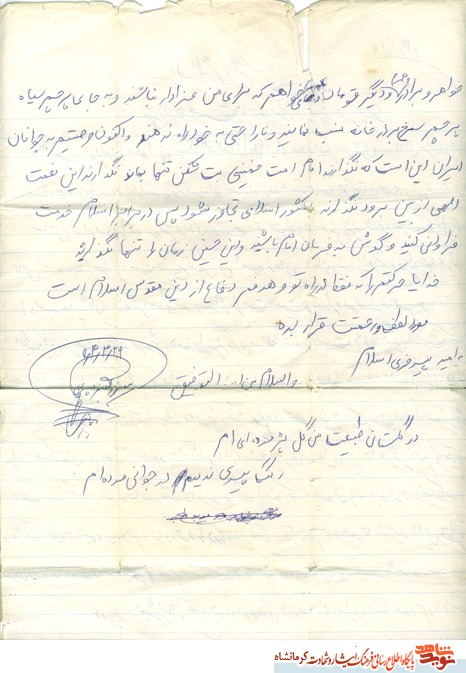 خواهر و برادران و دیگر قومان می‌خواهم که برای من عزادار نباشند و به جای پرچم سیاه
پرچم سرخ بر در خانه نصب نمایند و ناراحتی به خود راه ندهند و اکنون وصیتم به جوانان
ایران این است که نگذارند امام امت خمینی بت شکن تنها بماند نگذارند این نعمت
الهی از بین برود نگذارند به کشور اسلامی تجاوز شود پس در برابر اسلام خدمت
فراوانی کنید و گوش به فرمان امام باشید و این حسین زمان را تنها نگذارید
خدایا حرکتم را که فقط در راه تو و هدفم دفاع از دین مقدس اسلام است
مورد لطف و رحمتت قرار بده
به امید پیروزی اسلام
والسلام من الله التوفیق
در گلستان طبیعت من گل پژمرده ای ام
رنگ پیری ندیدم در جوانی مرده ام
نوید شاهد
پایگاه اطلاع رسانی فرهنگ ایثار و شهادت کرمانشاه